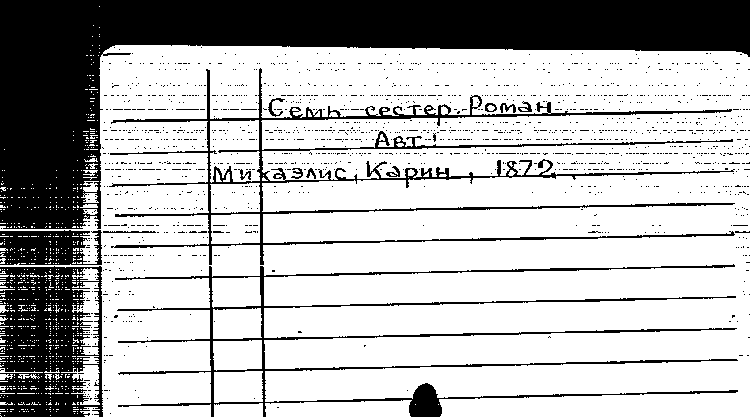 Семь сестер. Роман
Авт:
Михаэлис, Карин, 1872.